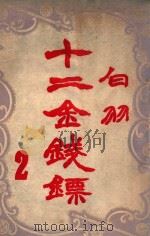 白羽
十二金錢鏢
2
mtoou.info